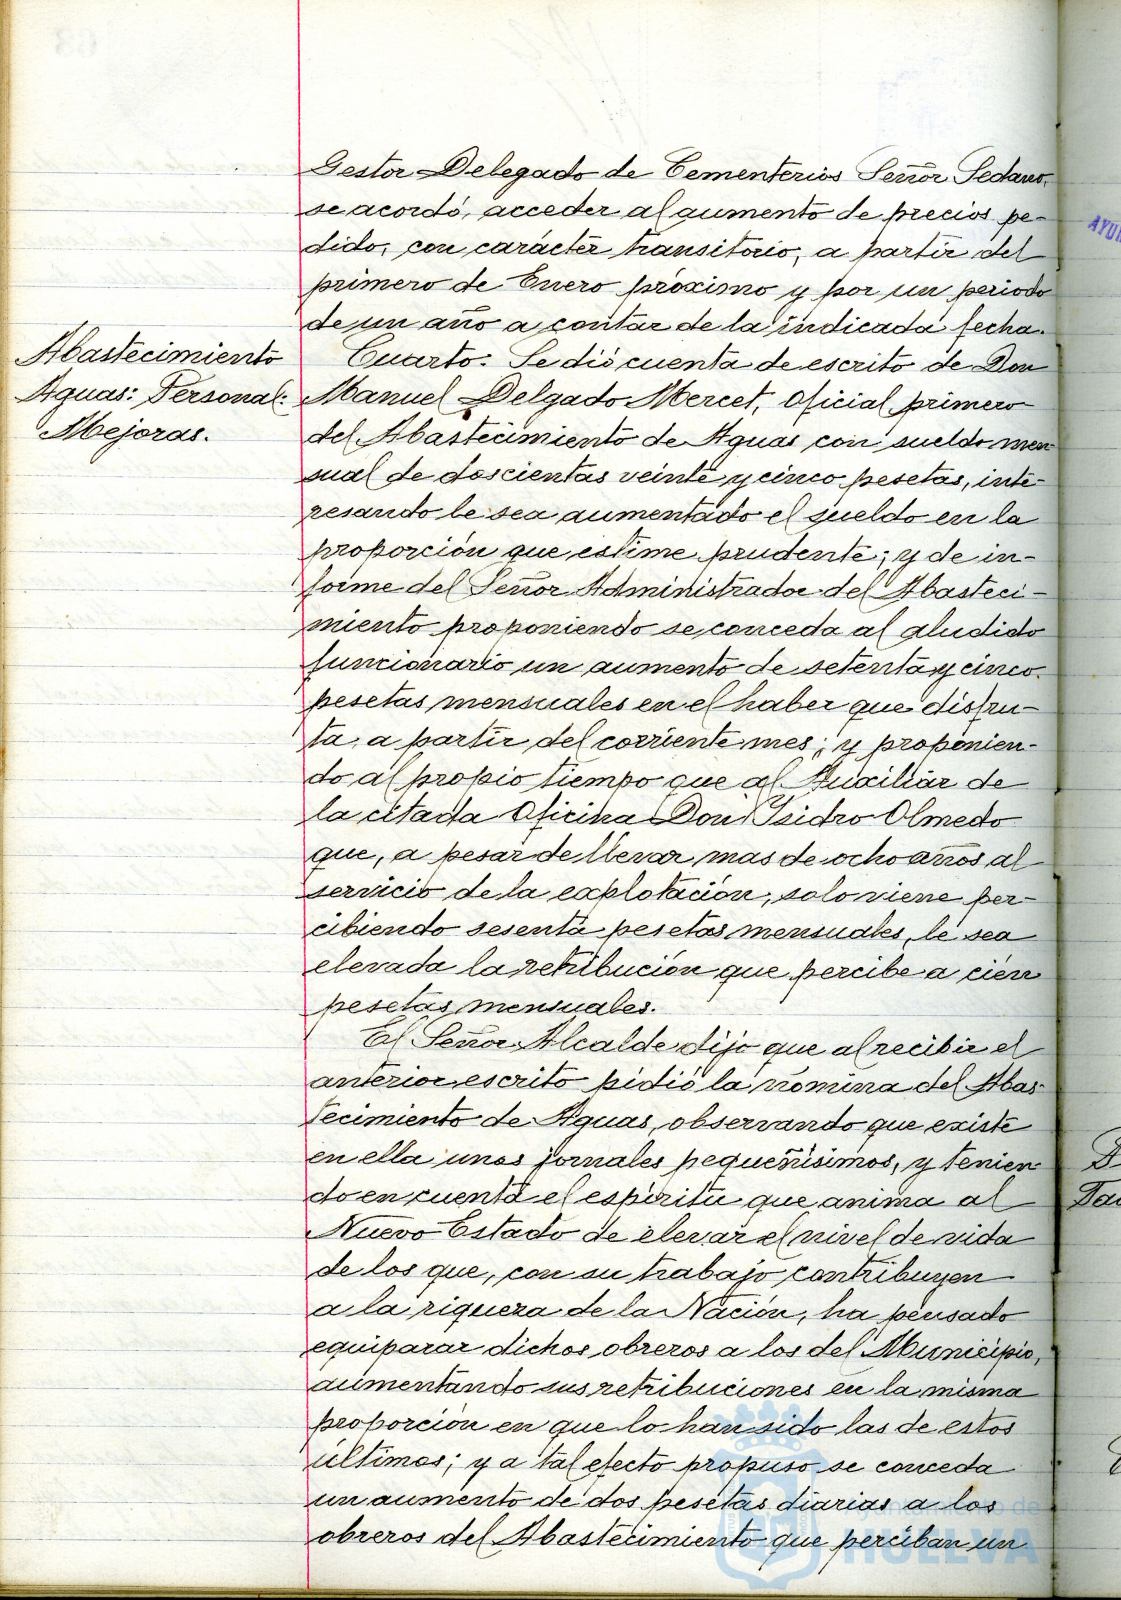 Gestor Delegado de Cementerios Señor Sedano,
se acordó, acceder al aumento de precios pe-
dido, con carácter transitorio, a partir del
primero de Enero próximo y por un periodo
de un año a contar de la indicada fecha.
Abastecimiento
Aguas: Personal:
Mejoras.
Cuarto: Se dió cuenta de escrito de Don
Manuel Delgado Mercet, Oficial primero
del Abastecimiento de Aguas con sueldo men
sual de doscientas veinte y cinco pesetas, inte-
resando le sea aumentado el sueldo en la
proporción que estime prudente; y de in-
forme del Señor Administrador del Abasteci-
miento proponiendo se conceda al aludido
funcionario un aumento de setenta y cinco
pesetas mensuales en el haber que disfru-
ta, a partir del corriente mes; y proponien-
do al propio tiempo que al Auxiliar de
la citada Oficina Don Isidro Olmedo
que, a pesar de llevar mas de ocho años al
servicio de la explotación, solo viene per-
cibiendo sesenta pesetas mensuales, le sea
elevada la retribución que percibe a cien
pesetas mensuales.
El Señor Alcalde dijo que al recibir el
anterior escrito pidió la nómina del Abas-
tecimiento de Aguas, observando que existe
en ella unos jornales pequeñisimos, y tenien-
do en cuenta el espiritu que anima al
Nuevo Estado de elevar el nivel de vida
de los que, con su trabajo contribuyen
a la riqueza de la Nación, ha pensado
equiparar dichos obreros a los del Municipio,
aumentando sus retribuciones en la misma
proporción en que lo han sido las de estos
últimos; y a tal efecto propuso se conceda
un aumento de dos pesetas diarias a los
obreros del Abastecimiento que perciban un
Ayuntamiento de
HUELVA